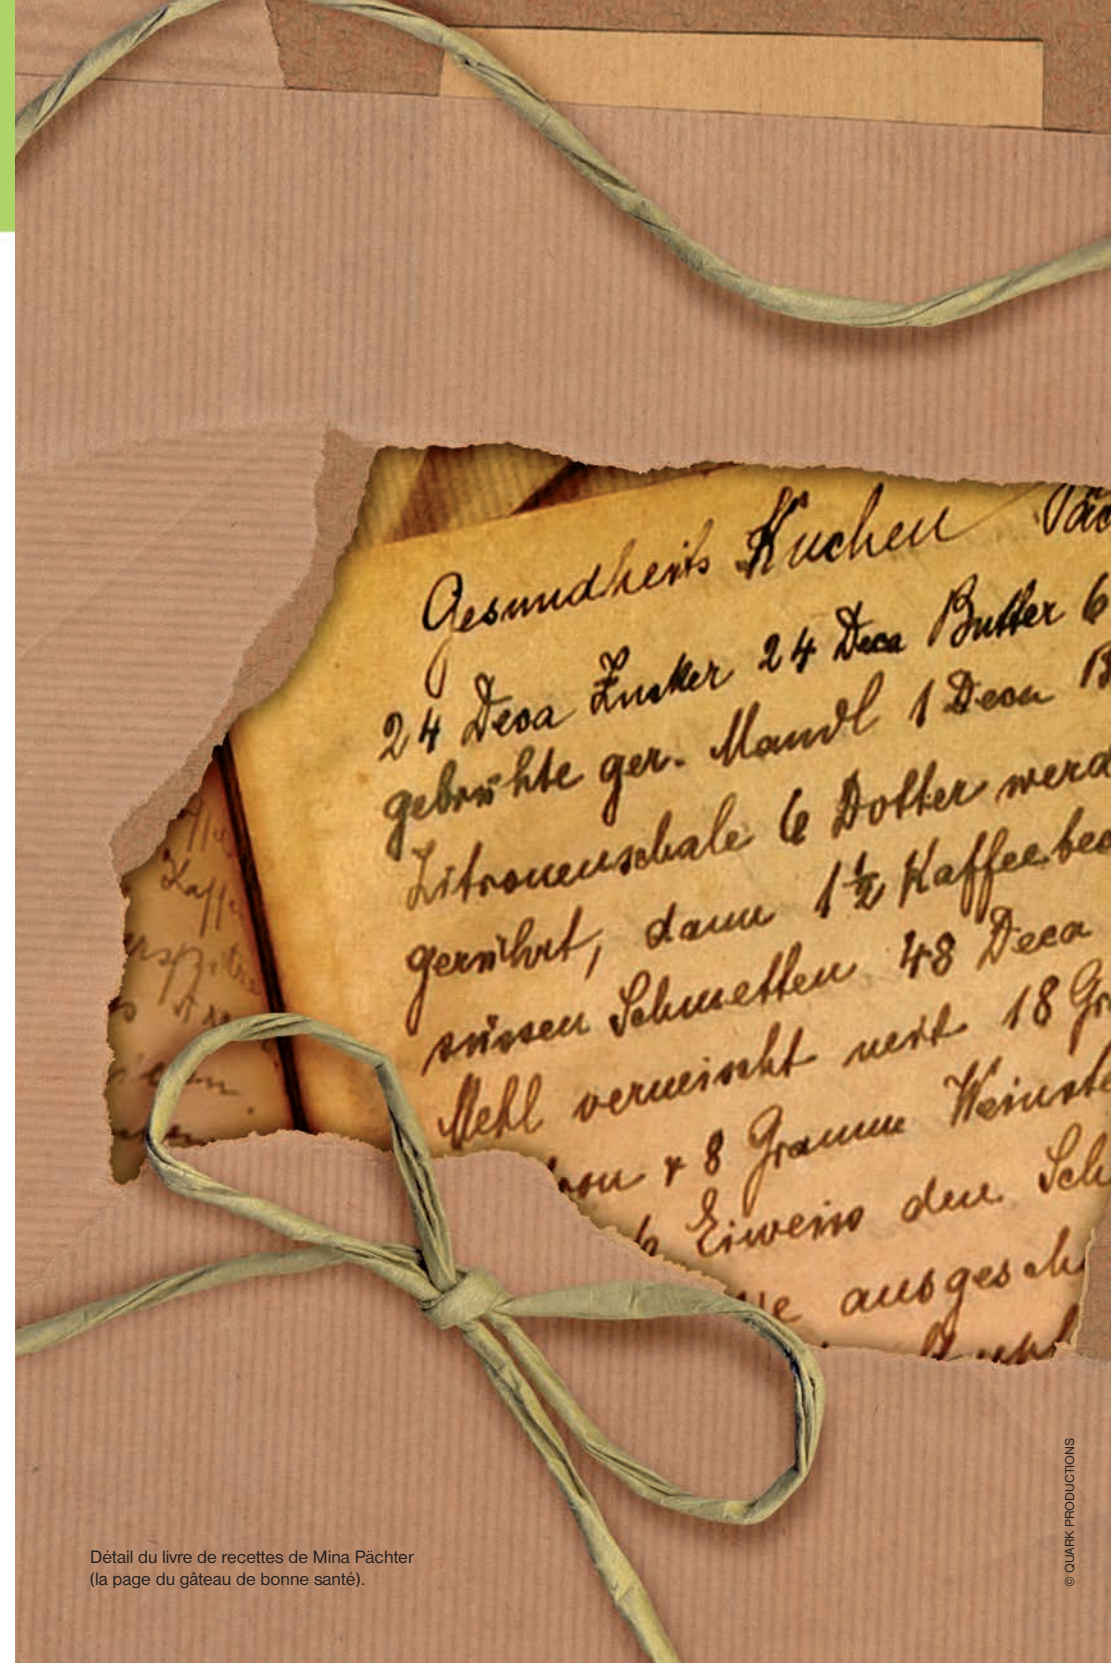 Gesundheits Kuchen Päc
24 Deca Zucker 24 Deca Butter 6
gebrühte ger. Mandl 1 Deca B
Zitronenschale 6 Dotter werd
gerührt, dann 1½ Kaffeebec
süssen Schmetten 48 Deca
Mehl vermischt mit 18 Gr
8 Gramm Weinste
6 Eiweiss den Sch
ausgesch
Détail du livre de recettes de Mina Pächter
(la page du gâteau de bonne santé).
© QUARK PRODUCTIONS